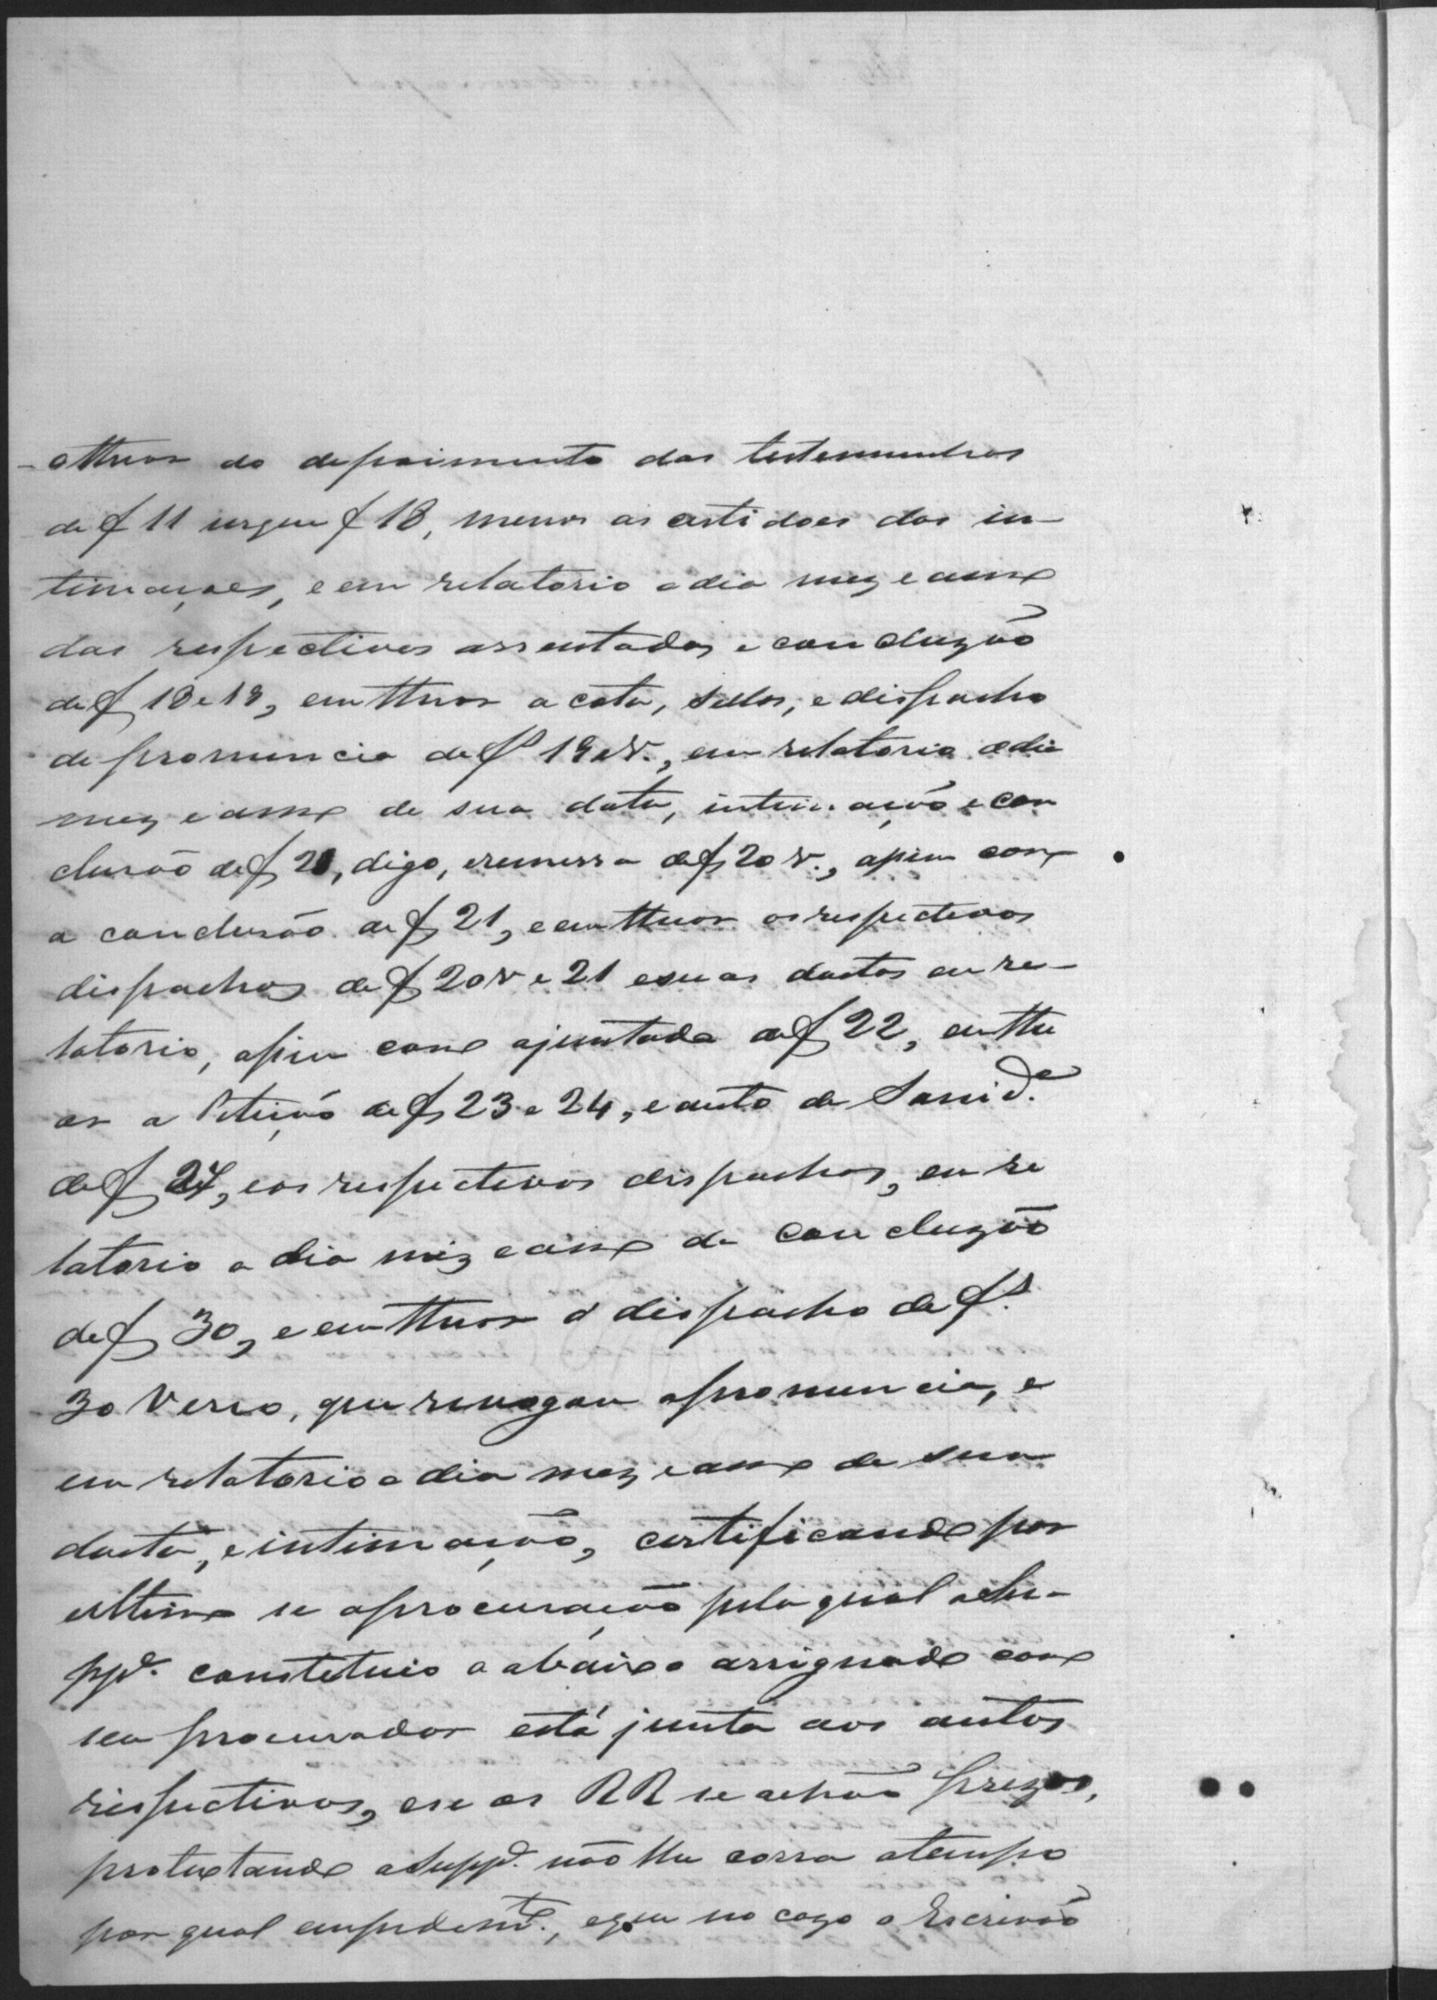 - o theor do depoimento das testemunhas
de f 11 usque f 18, menos as certidoes das in-
timações, e em relatorio o dia mez e anno
das respectivas assentadas, e concluzão
de f 18 e 19, em theor a cota, sellos, e dispacho
de pronuncia de fs 19 e v., em relatorio o dia
mez e anno de sua data, intimação e con
clusão de f 21, digo, e remessa de f 20 v., assim como
a conclusão de f 21, e em theor os respectivos
dispachos de f 20 v e 21 e suas dactas em re-
latorio, assim como ajuntada de f 22, em the
or a Petição de f 23 e 24, e auto de Sanid.e
de f 27, e os respectivos dispachos, em re
latorio o dia mez e anno da concluzão
de f 30, e em theor o dispacho de fs.
30 Verso, que revogou a pronuncia, e
em relatorio o dia mez e anno de sua
dacta, e intimação, certificando por
ultimo se a procuração pela qual a Su-
ppe. constituio o abaixo assignado como
seu procurador está junta aos autos
respectivos, e se os RR se achão prezos,
protestando a Suppe. não lhe corra o tempo
por qual empedimto., e que no cazo o Escrivão